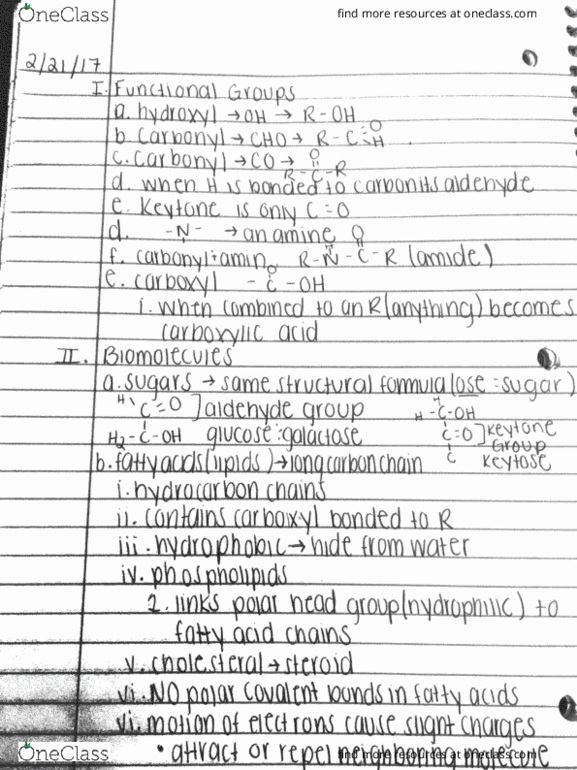 OneClass
find more resources at oneclass.com
2/21/17
I. Functional Groups
a. hydroxyl → OH → R-OH
b. Carbonyl → CHO → R-C=O H
c. carbonyl → CO → R-C-R O
d. when H is bonded to carbon its aldehyde
e. Keytone is only C=O
d. -N- → an amine
f. carbonyl + amin R-N-C-R (amide) O
e. carboxyl -C-OH O
i. when combined to an R (anything) becomes
carboxylic acid
II. Biomolecules
a. sugars → same structural formula (ose = sugar)
H C=O ] aldehyde group H-C-OH H
H2-C-OH glucose : galactose C=O ] keytone
Group
b. fatty acids (lipids) → long carbon chain C keytose
i. hydrocarbon chains
ii. contains carboxyl bonded to R
iii. hydrophobic → hide from water
iv. phospholipids
1. links polar head group (hydrophilic) to
fatty acid chains
v. cholesteral → steroid
vi. NO polar covalent bonds in fatty acids
vi. motion of electrons cause slight charges
• attract or repel neighboring molecule
OneClass
find more resources at oneclass.com